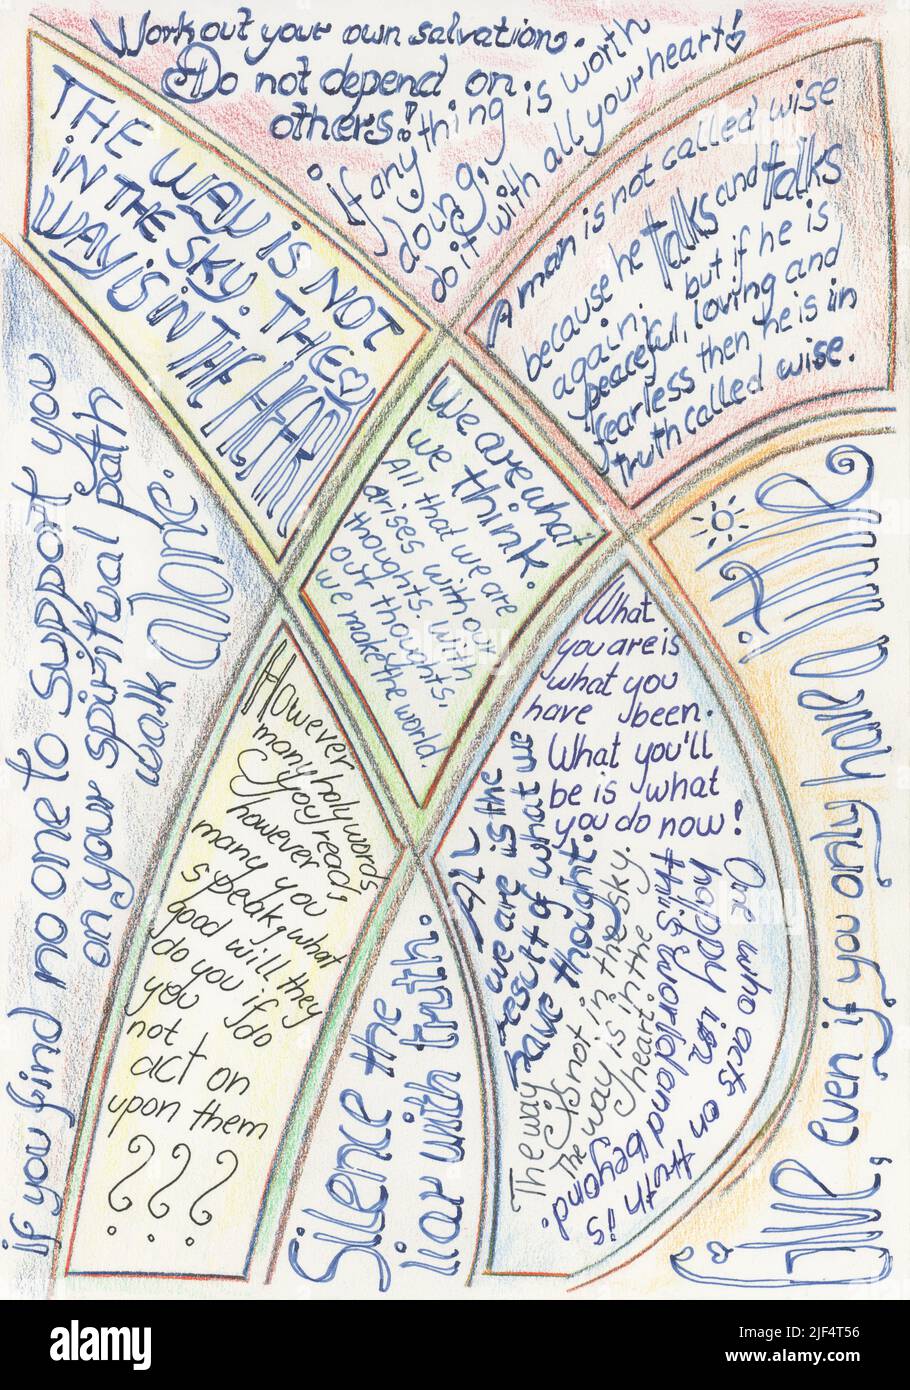 Work out your own salvation.
Do not depend on
others!
if anything is worth
doing,
do it with all your heart!
THE WAY IS NOT
IN THE SKY. THE
WAY IS IN THE HEART
A man is not called wise
because he talks and talks
again; but if he is
peaceful, loving and
fearless then he is in
truth called wise.
We are what
we think.
All that we are
arises with our
thoughts. With
our thoughts,
we make the world.
if you find no one to support you
on your spiritual path
walk alone.
However
many holy words
you read,
however
many you
speak, what
good will they
do you if do
you
not
act on
upon them
???
Silence the
liar with truth.
What
you are is
what you
have been.
What you'll
be is what
you do now!
All
we are is the
result of what we
have thought.
The way
is not in the sky.
The way is in the
heart.
One who acts on truth is
happy in
this world and beyond.
Give, even if you only have a little.
alamy
Image ID: 2JF4T56
www.alamy.com